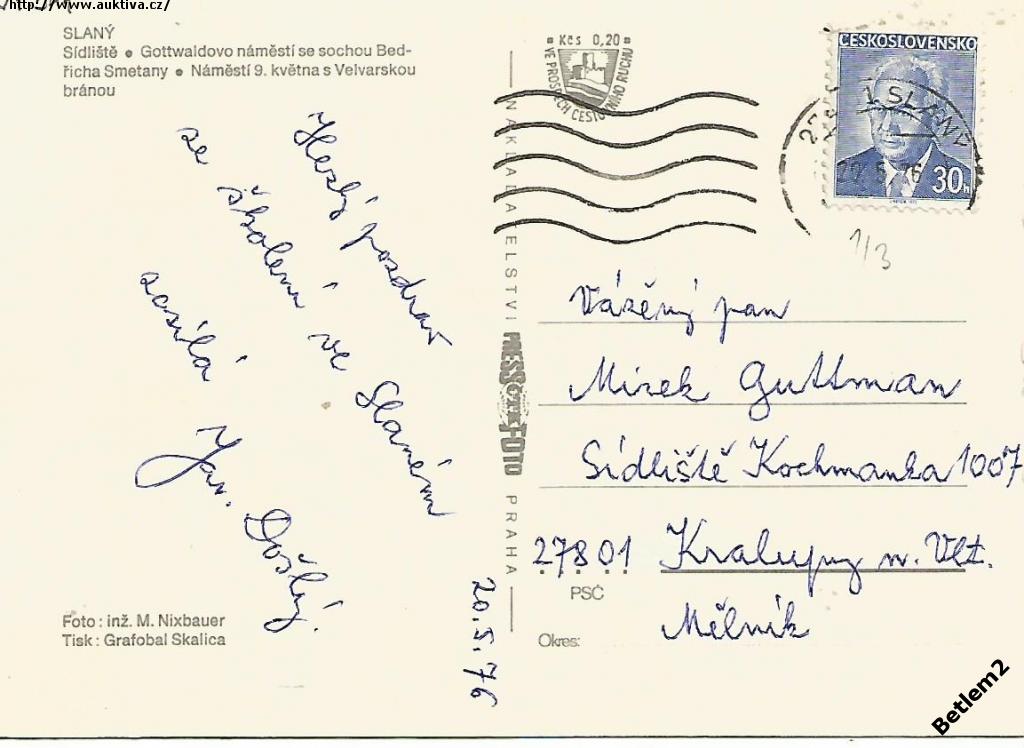 http://www.auktiva.cz/
SLANÝ
Sídliště • Gottwaldovo náměstí se sochou Bed-
řicha Smetany • Náměstí 9. května s Velvarskou
bránou
Hezký pozdrav
se školení ve Slaném
zasílá
Jar. Došlý.
20.5.76
Foto : inž. M. Nixbauer
Tisk : Grafobal Skalica
NAKLADATELSTVÍ PRESSFOTO PRAHA
Kčs 0,20
VE PROSPĚCH CESTOVNÍHO RUCHU
ČESKOSLOVENSKO
SLANÝ
20.5.76
30h
1/3
Vážený pan
Mirek Guttman
Sídliště Kochmanka 1007
27801 Kralupy n. Vlt.
PSČ
Okres: Mělník
Betlem2